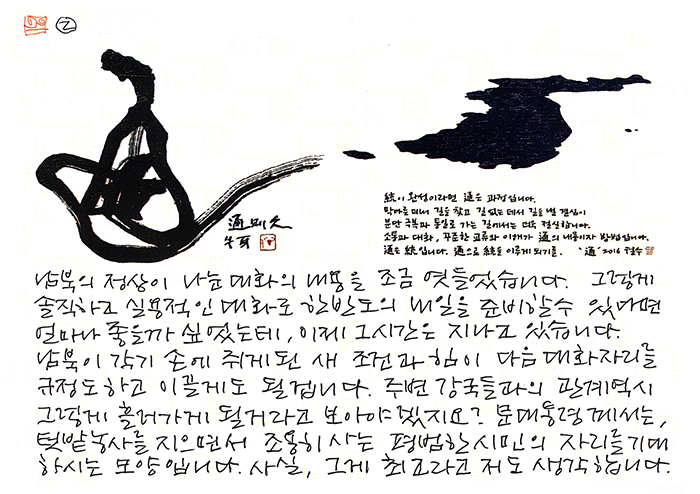 統이 완성이라면 通은 과정입니다.
막다를 데서 길을 찾고 길 없는 데서 길을 낼 결심이
분단 극복과 통일로 가는 길에서는 더욱 절실합니다.
소통과 대화, 꾸준한 교류와 이해가 通의 내용이자 방법입니다.
通은 統입니다. 通으로 統을 이루게 되기를. '通' 2016 철수
남북의 정상이 나눈 대화의 내용을 조금 엿들었습니다. 그렇게
솔직하고 실용적인 대화로 한반도의 내일을 준비할수 있다면
얼마나 좋을까 싶었는데, 이제 그시간은 지나고 있습니다.
남북이 각기 손에 쥐게된 새 조건과 힘이 다음 대화자리를
규정도하고 이끌게도 될겁니다. 주변 강국들과의 관계역시
그렇게 흘러가게 될거라고 보아야겠지요? 문대통령께서는,
텃밭농사를 지으면서 조용히 사는 평범한시민의 자리를기대
하시는 모양입니다. 사실, 그게 최고라고 저도 생각합니다.